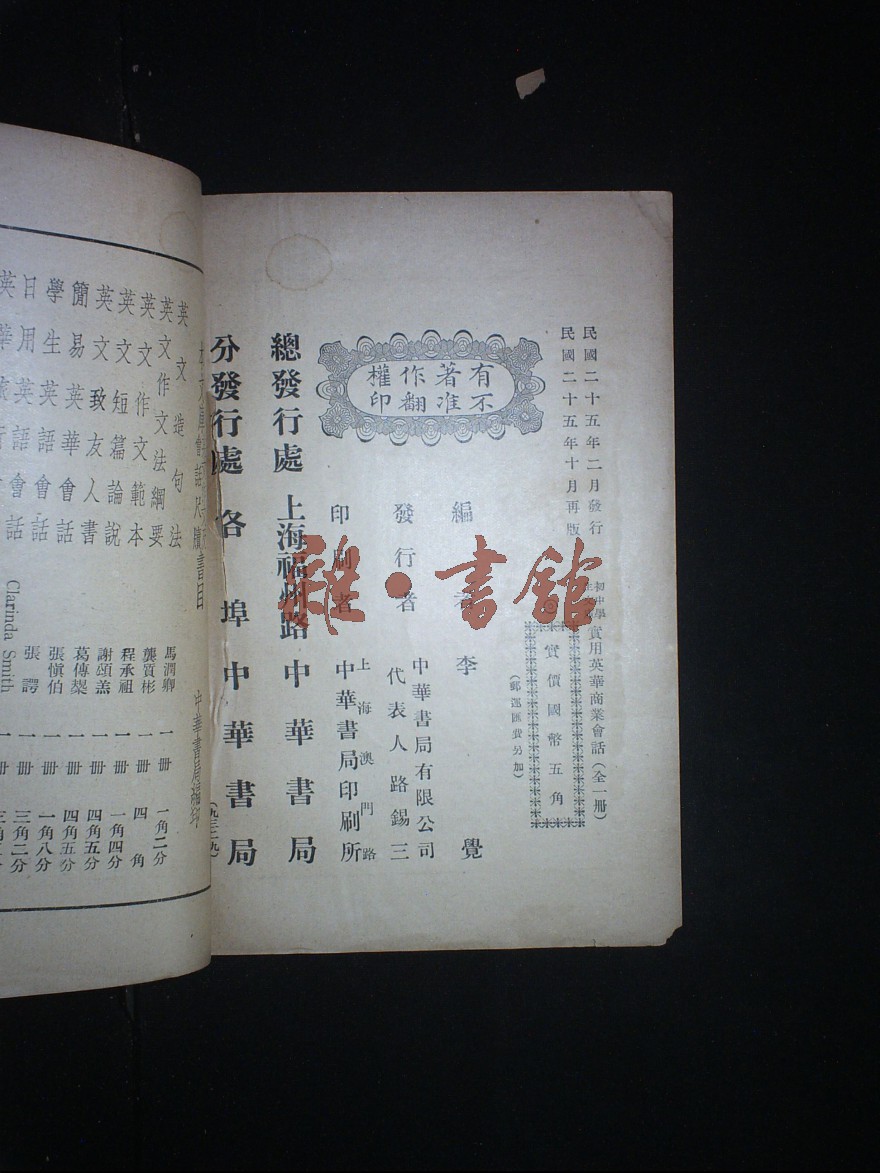 民國二十五年二月發行
民國二十五年十月再版
實用英華商業會話(全一冊)
實價國幣五角
(郵運匯費另加)
有著作權
不准翻印
編者 李覺
發行者 中華書局有限公司
代表人路錫三
印刷者 上海澳門路
中華書局印刷所
總發行處 上海福州路 中華書局
分發行處 各埠 中華書局
(九三二九)
雜·書館
書目 中華書局編印
英文造句法 馬潤卿 一冊 一角二分
英文作文法綱要 龔質彬 一冊 四角
英文作文範本 程承祖 一冊 一角四分
英文短篇論說 謝頌羔 一冊 四角五分
英文致友人書 葛傳槼 一冊 四角五分
簡易英華會話 張愼伯 一冊 一角八分
學生英語會話 張諤 一冊 三角二分
日用英語會話 Clarinda Smith 一冊